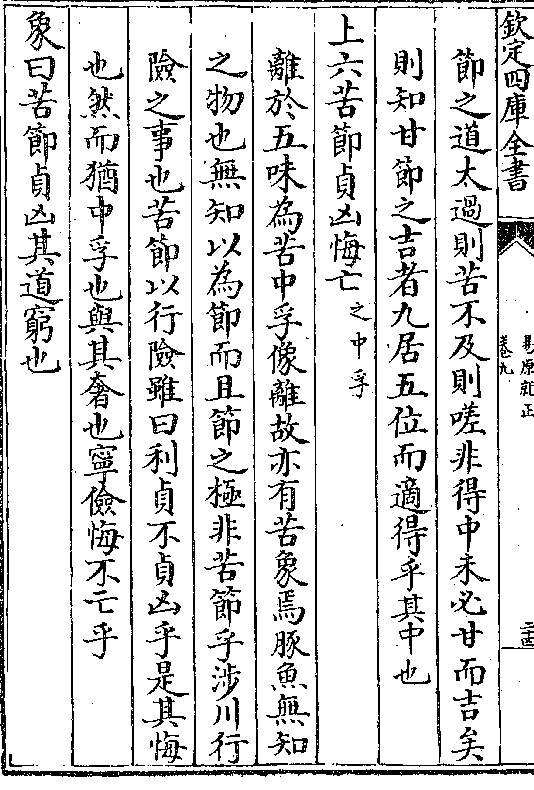 欽定四庫全書
易原就正
卷九
二十四
節之道太過則苦不及則嗟非得中未必甘而吉矣
則知甘節之吉者九居五位而適得乎其中也
上六苦節貞凶悔亡之中孚
離於五味為苦中孚像離故亦有苦象焉豚魚無知
之物也無知以為節而且節之極非苦節乎涉川行
險之事也苦節以行險雖曰利貞不貞凶乎是其悔
也然而猶中孚也與其奢也寧儉悔不亡乎
象曰苦節貞凶其道窮也